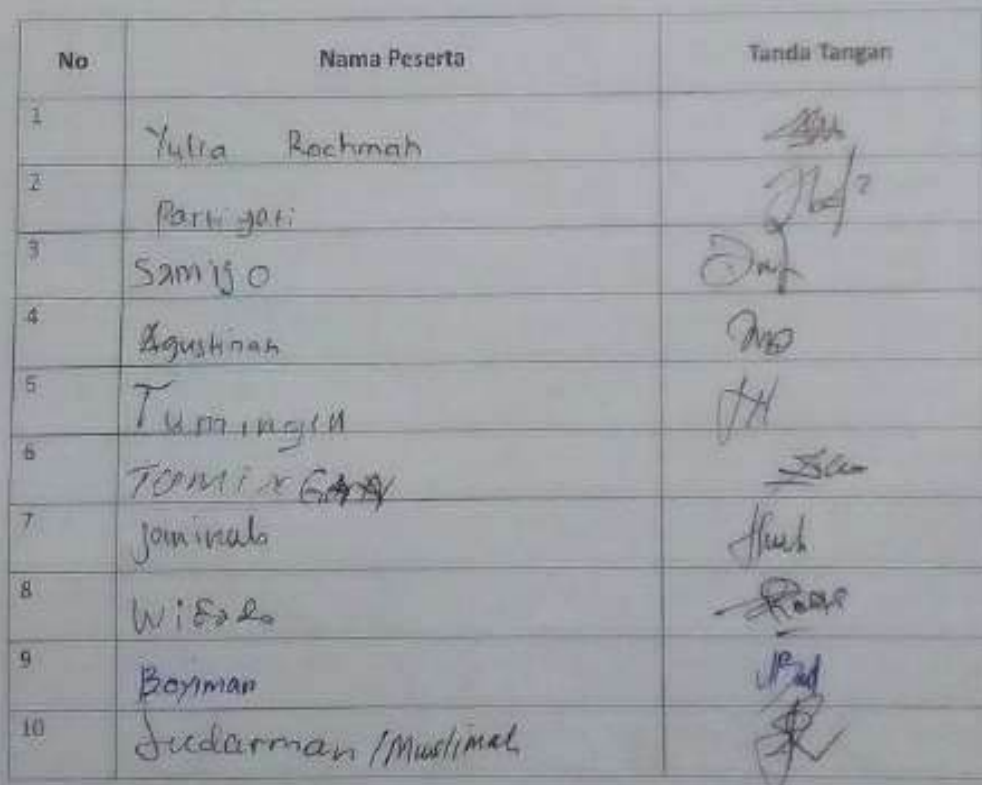 No Nama Peserta Tanda Tangan
1 Yulia Rochmah
2 Partiyati
3 Samijo
4 Agustinah
5 Tumingin
6
7 Jominah
8
9 Boyiman
10 Sudarman / Muslimah